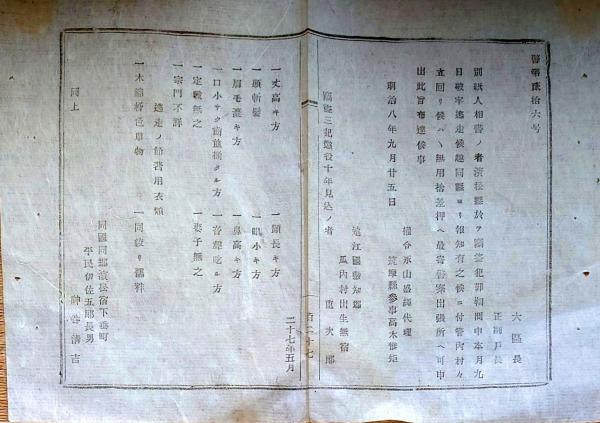 番第陸拾六号
大區長
正副戸長
別紙人相書ノ者濱松縣於テ竊盗犯罪糺問中本月九
日破牢逃走候趣同縣ヨリ報知有之候ニ付管内村々
立回リ候ハヽ無用捨差押ヘ最寄警察出張所ヘ可申
出此旨布達候事
明治八年九月廿五日
權令永山盛輝代理
筑摩縣參事高木惟矩
竊盗三犯懲役十年見込ノ者
遠江國敷知郡
瓜内村出生無宿
重次郎
二十七年五月
一丈高キ方
一顔長キ方
一頭斬髪
一眼小キ方
一眉毛濃キ方
一鼻高キ方
一口小サク歯並揃タル方
一音聲吃ル方
一定職無之
一妻子無之
一宗門不詳
逃走ノ節著用衣類
一木綿柿色單物
一同紋リ襦袢
同國同郡濱松宿下垂町
平民伊佐五郎長男
同上
神谷清吉
百二十七